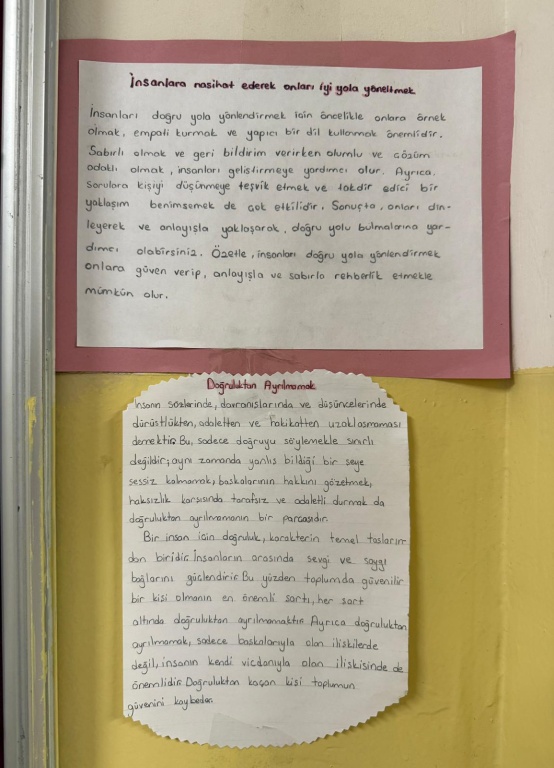 İnsanlara nasihat ederek onları iyi yola yöneltmek
İnsanları doğru yola yönlendirmek için öncelikle onlara örnek
olmak, empati kurmak ve yapıcı bir dil kullanmak önemlidir.
Sabırlı olmak ve geri bildirim verirken olumlu ve çözüm
odaklı olmak, insanları geliştirmeye yardımcı olur. Ayrıca,
sorularla kişiyi düşünmeye teşvik etmek ve takdir edici bir
yaklaşım benimsemek de çok etkilidir. Sonuçta, onları din-
leyerek ve anlayışla yaklaşarak, doğru yolu bulmalarına yar-
dımcı olabirsiniz. Özetle, insanları doğru yola yönlendirmek
onlara güven verip, anlayışla ve sabırla rehberlik etmekle
mümkün olur.
Doğruluktan Ayrılmamak
İnsanın sözlerinde, davranışlarında ve düşüncelerinde
dürüstlükten, adaletten ve hakikatten uzaklaşmaması
demektir. Bu, sadece doğruyu söylemekle sınırlı
değildir; aynı zamanda yanlış bildiği bir şeye
sessiz kalmamak, başkalarının hakkını gözetmek,
haksızlık karşısında tarafsız ve adaletli durmak da
doğruluktan ayrılmamanın bir parçasıdır.
Bir insan için doğruluk, karakterin temel taşların-
dan biridir. İnsanların arasında sevgi ve saygı
bağlarını güçlendirir. Bu yüzden toplumda güvenilir
bir kişi olmanın en önemli şartı, her şart
altında doğruluktan ayrılmamaktır. Ayrıca doğruluktan
ayrılmamak, sadece başkalarıyla olan ilişkilerde
değil, insanın kendi vicdanıyla olan ilişkisinde de
önemlidir. Doğruluktan kaçan kişi toplumun
güvenini kaybeder.